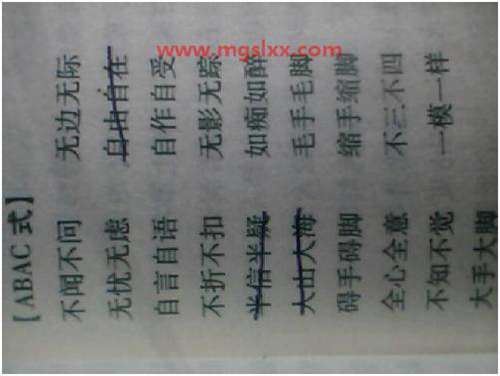 www.mgslxx.com
【ABAC 式】
不闻不问 无边无际
无忧无虑 自由自在
自言自语 自作自受
不折不扣 无影无踪
半信半疑 如痴如醉
大山大海 毛手毛脚
碍手碍脚 缩手缩脚
全心全意 不三不四
不知不觉 一模一样
大手大脚